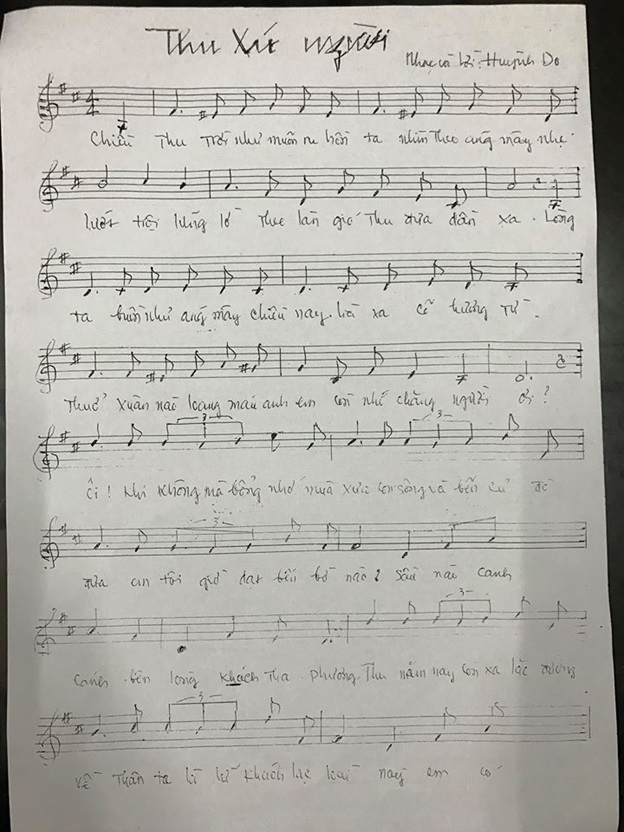 Thu Xứ người
Nhạc và lời: Huỳnh Do
Chiều Thu trời như muốn ru hồn ta nhìn theo áng mây nhẹ
lướt trôi lững lờ theo làn gió Thu đưa dần xa. Lòng
ta buồn như áng mây chiều nay. xa cố hương
Thuở Xuân nào loang màu anh em còn nhớ chăng người ơi?
Ôi! Khi không mà bỗng nhớ mùa xưa con sông và bến cũ đò
đưa em tôi giờ dạt bến bờ nào? Sầu nào canh
cánh bên lòng khách Tha phương. Thu năm nay còn xa lắc đường
về Thân ta lữ khách lạc loài này em có